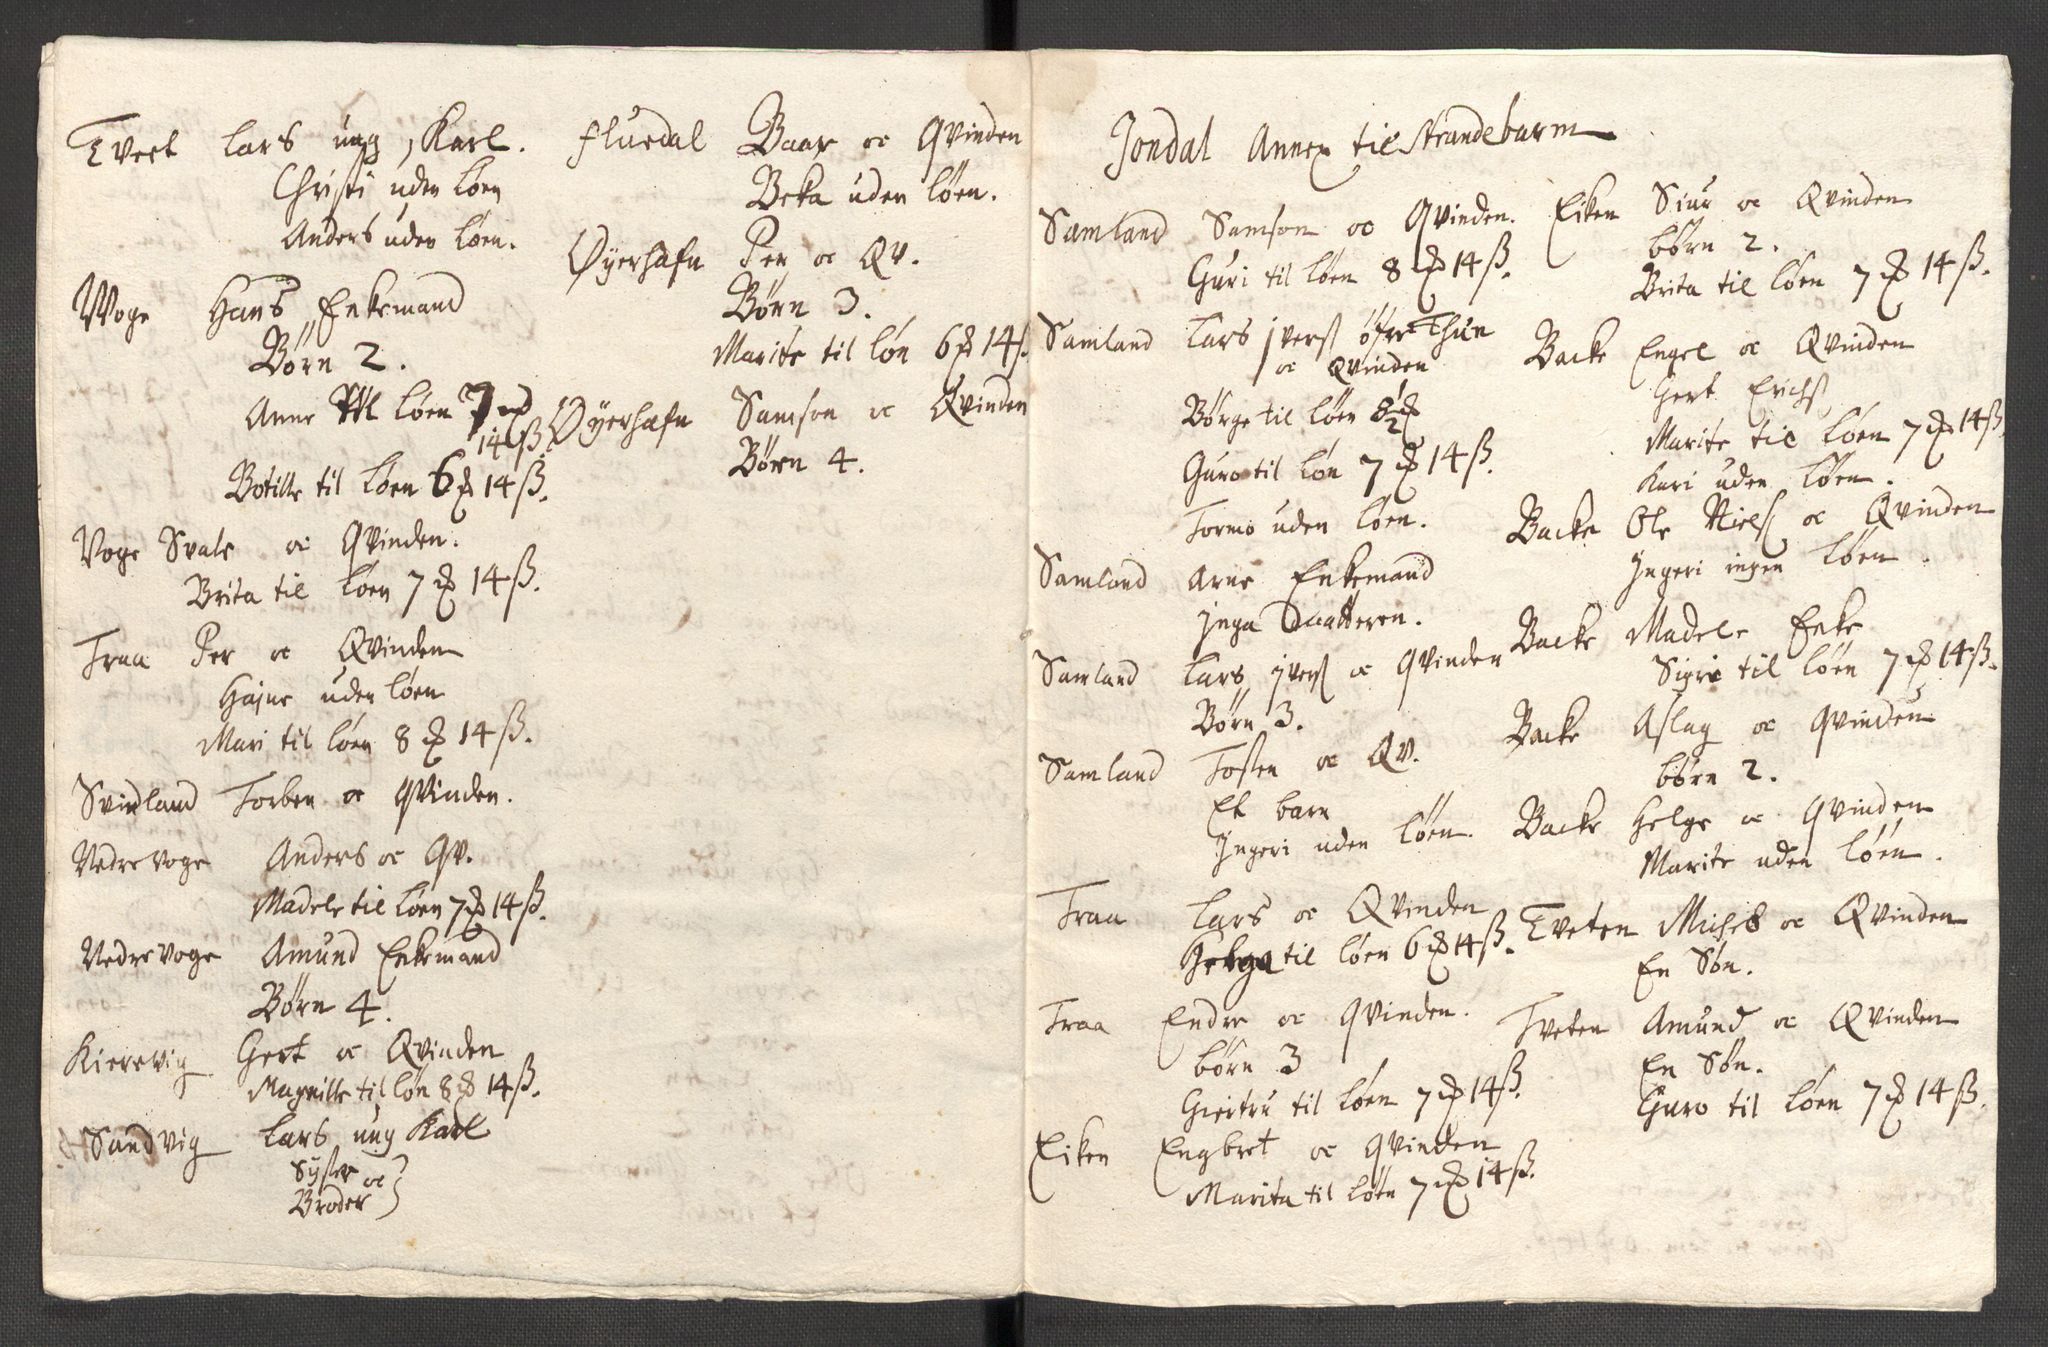 Tvect Lars ung Karl.
Christi uden Løen
Anders uden Løen.
Woge Hans Enkemand
Børn 2.
Anne til Løen 7 ꝶ
14 ß.
Botille til Løen 6 ꝶ 14 ß.
Voge Svale oc Qvinden.
Brita til Løen 7 ꝶ 14 ß.
Traa Per oc Qvinden
uden Løen
Mari til Løen 8 ꝶ 14 ß.
Svinland Torben oc Qvinden.
Nedrevoge Anders oc Qv.
Madele til Løen 7 ꝶ 14 ß.
Nedrevoge Amund Enkemand
Børn 4.
Kierevig Gert oc Qvinden
Magnille til Løn 8 ꝶ 14 ß.
Sandvig Lars ung Karl
Syster oc
Broder
Fluedal Baar oc Qvinden
Beka uden Løen.
Øyerhafn Per oc Qv.
Børn 3.
Marite til Løn 6 ꝶ 14 ß.
Øyerhafn Samson oc Qvinden
Børn 4.
Jondal Annex til Strandebarm
Samland Samson oc Qvinden.
Guri til Løen 8 ꝶ 14 ß.
Samland Lars Jverß øfre Thun
oc Qvinden
Børge til Løen
Guro til Løn 7 ꝶ 14 ß.
Tormo uden Løen.
Samland Arne Enkemand
Jnga Daatteren.
Samland Lars Jverß oc Qvinden
Børn 3.
Samland Tosten oc Qv.
Et barn
Jngeri uden Løen.
Traa Lars oc Qvinden
til Løen 6 ꝶ 14 ß.
Traa Endre oc Qvinden.
børn 3
Giertru til Løen 7 ꝶ 14 ß.
Eiken Engbret oc Qvinden
Marita til Løen 7 ꝶ 14 ß.
Eiken Siur oc Qvinden
børn 2.
Brita til Løen 7 ꝶ 14 ß.
Backe Engel oc Qvinden
Gert Erichß
Marite til Løen 7 ꝶ 14 ß.
Kari uden Løen.
Backe Ole Nielß oc Qvinden
Jngeri ingen Løen.
Backe Madele Enke
Sigri til Løen 7 ꝶ 14 ß.
Backe Aslag oc Qvinden
børn 2.
Backe Helge oc Qvinden
Marite uden Løen.
Tveten Michel oc Qvinden
En Søn.
Tveten Amund oc Qvinden
En Søn.
Guro til Løen 7 ꝶ 14 ß.